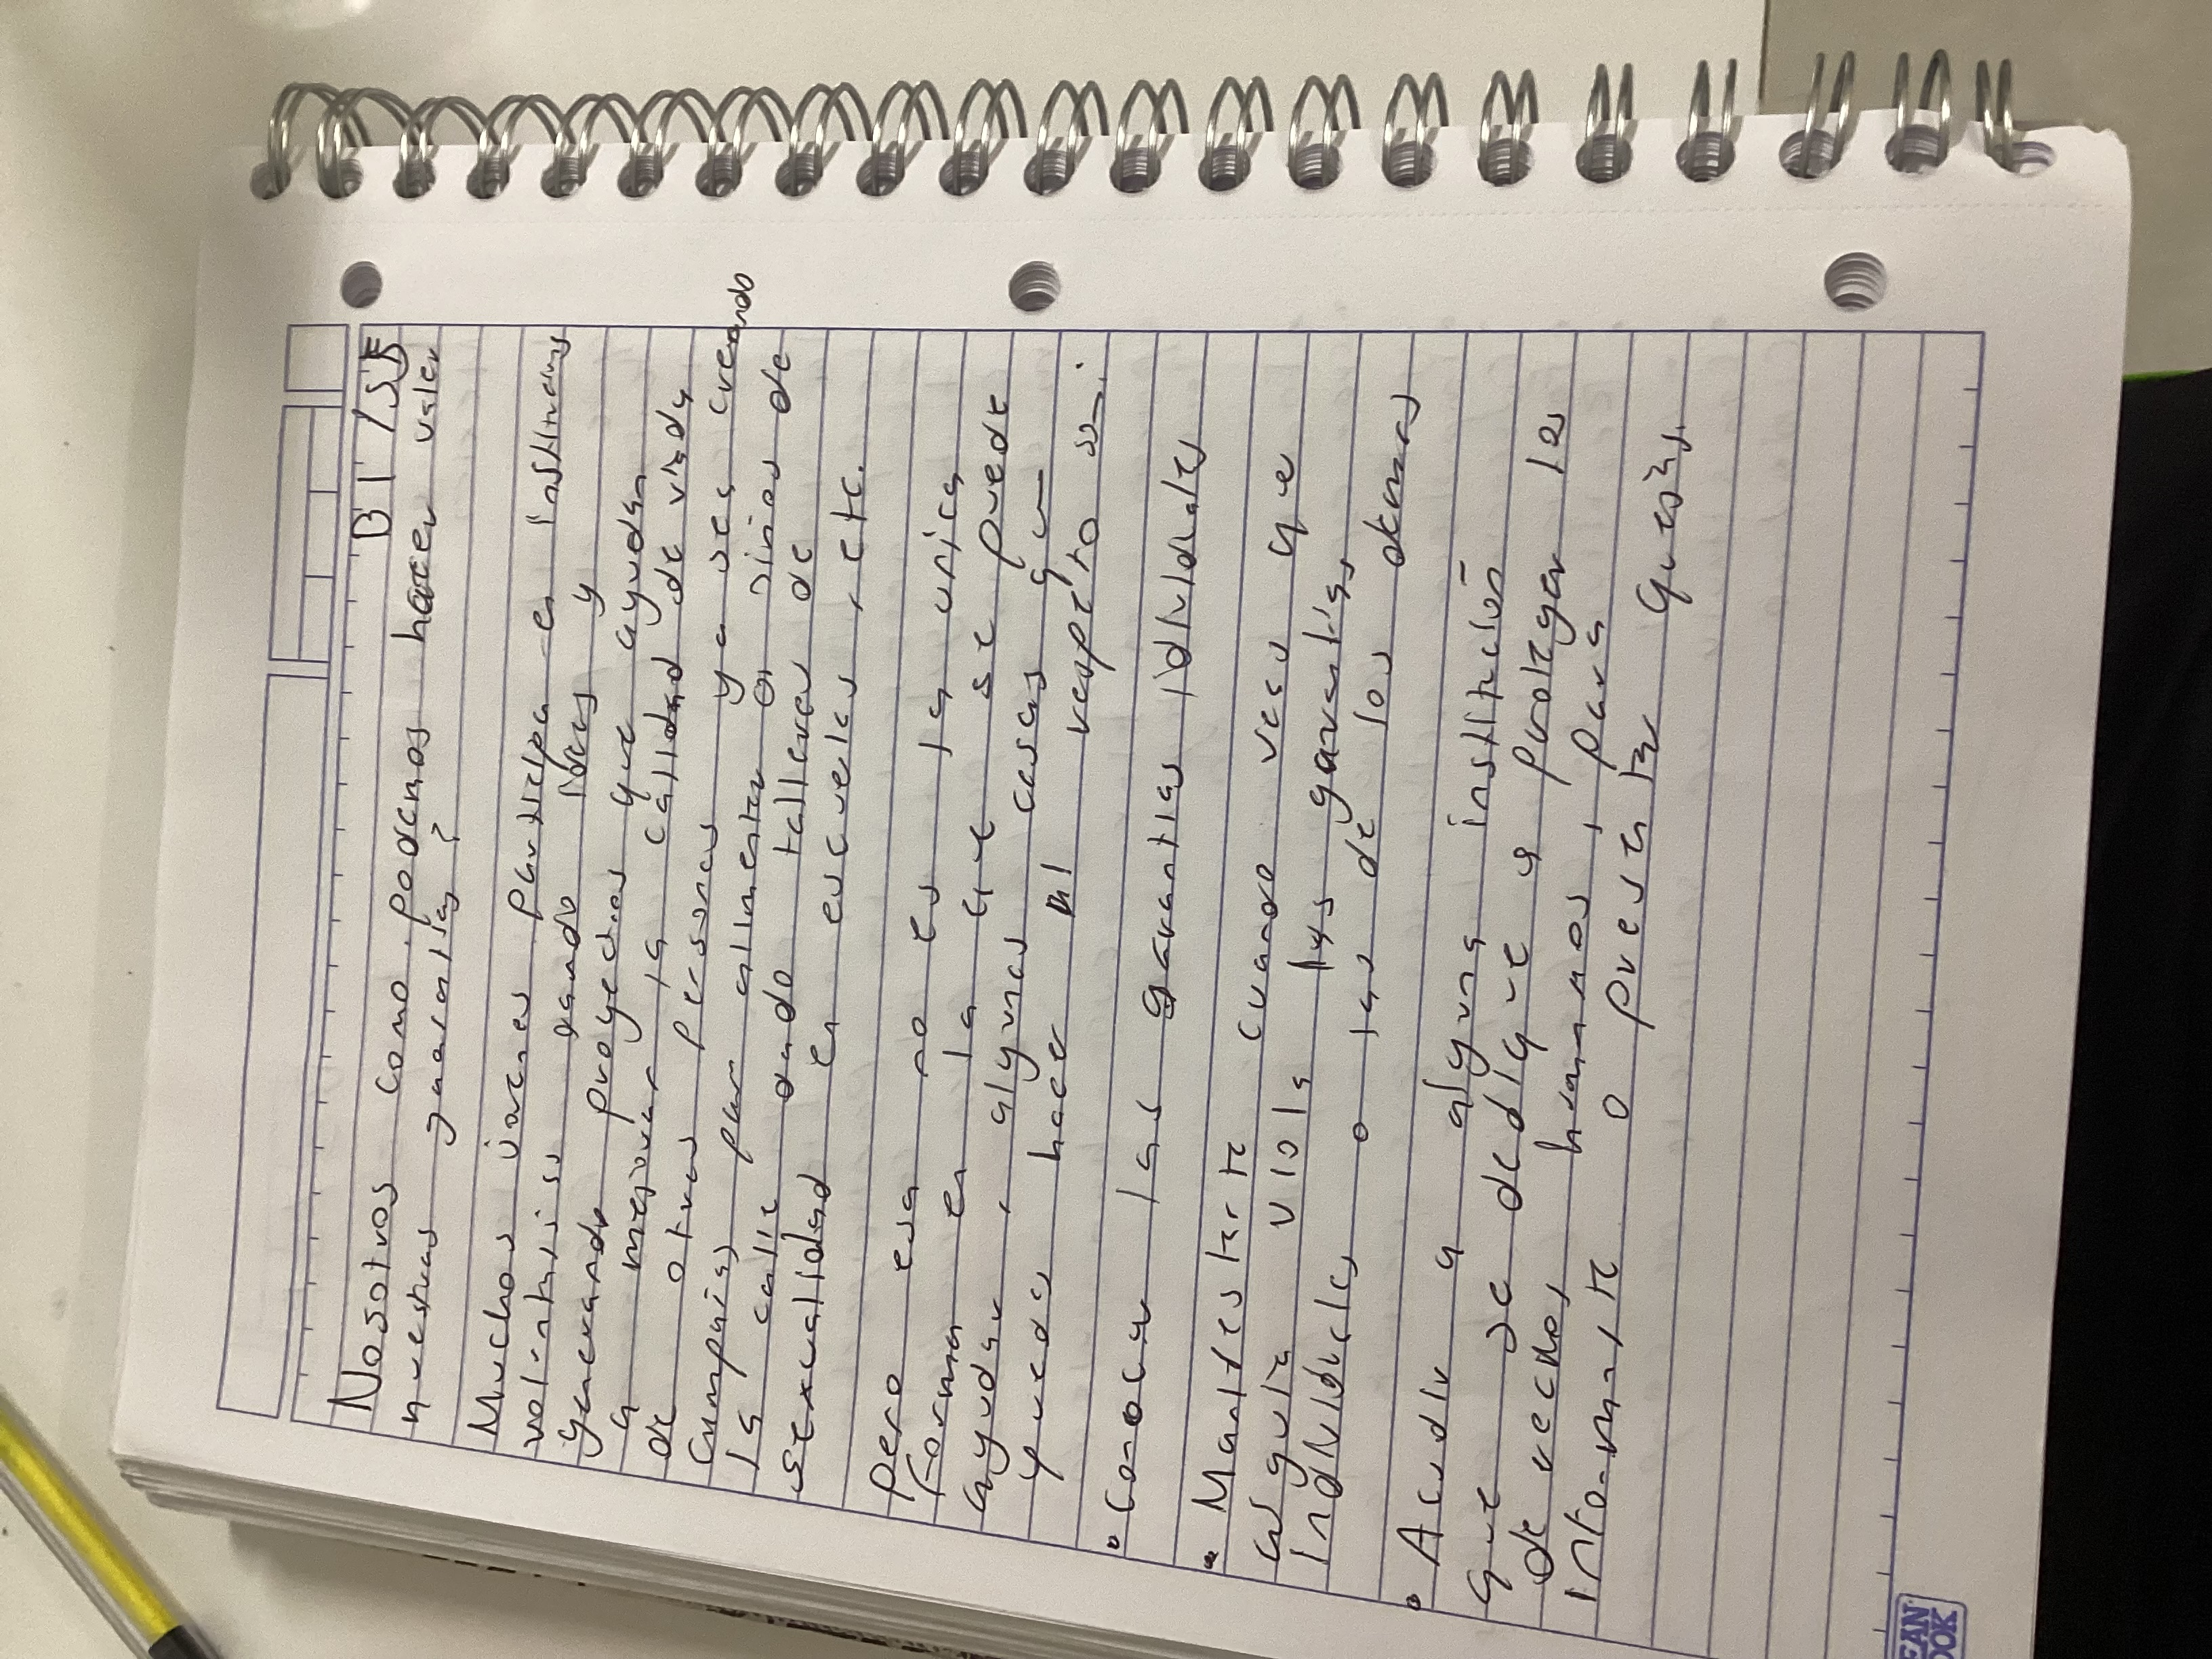 B1 / SB
Nosotros como podemos hacer valer
nuestras garantias?
Muchos jovenes participa en instituciones
dando ideas y
generando proyectos que ayuden
a mejorar la calidad de vida
de otras personas ya sea creando
campañas para alimentar a niños de
la calle dando talleres de
sexualidad en escuelas, etc.
pero esa no es la unica
forma en la que se puede
ayudar, algunas cosas que
puedes hacer al respecto son:
• Conocer las garantias idividuales
• Manifestarte cuando veas que
alguien viola las garantías
individuales o las de los demas
• Acudir a alguna institución
que se dedique a proteger los
derechos humanos, para
informarte o presentar quejas.
EAN
OOK